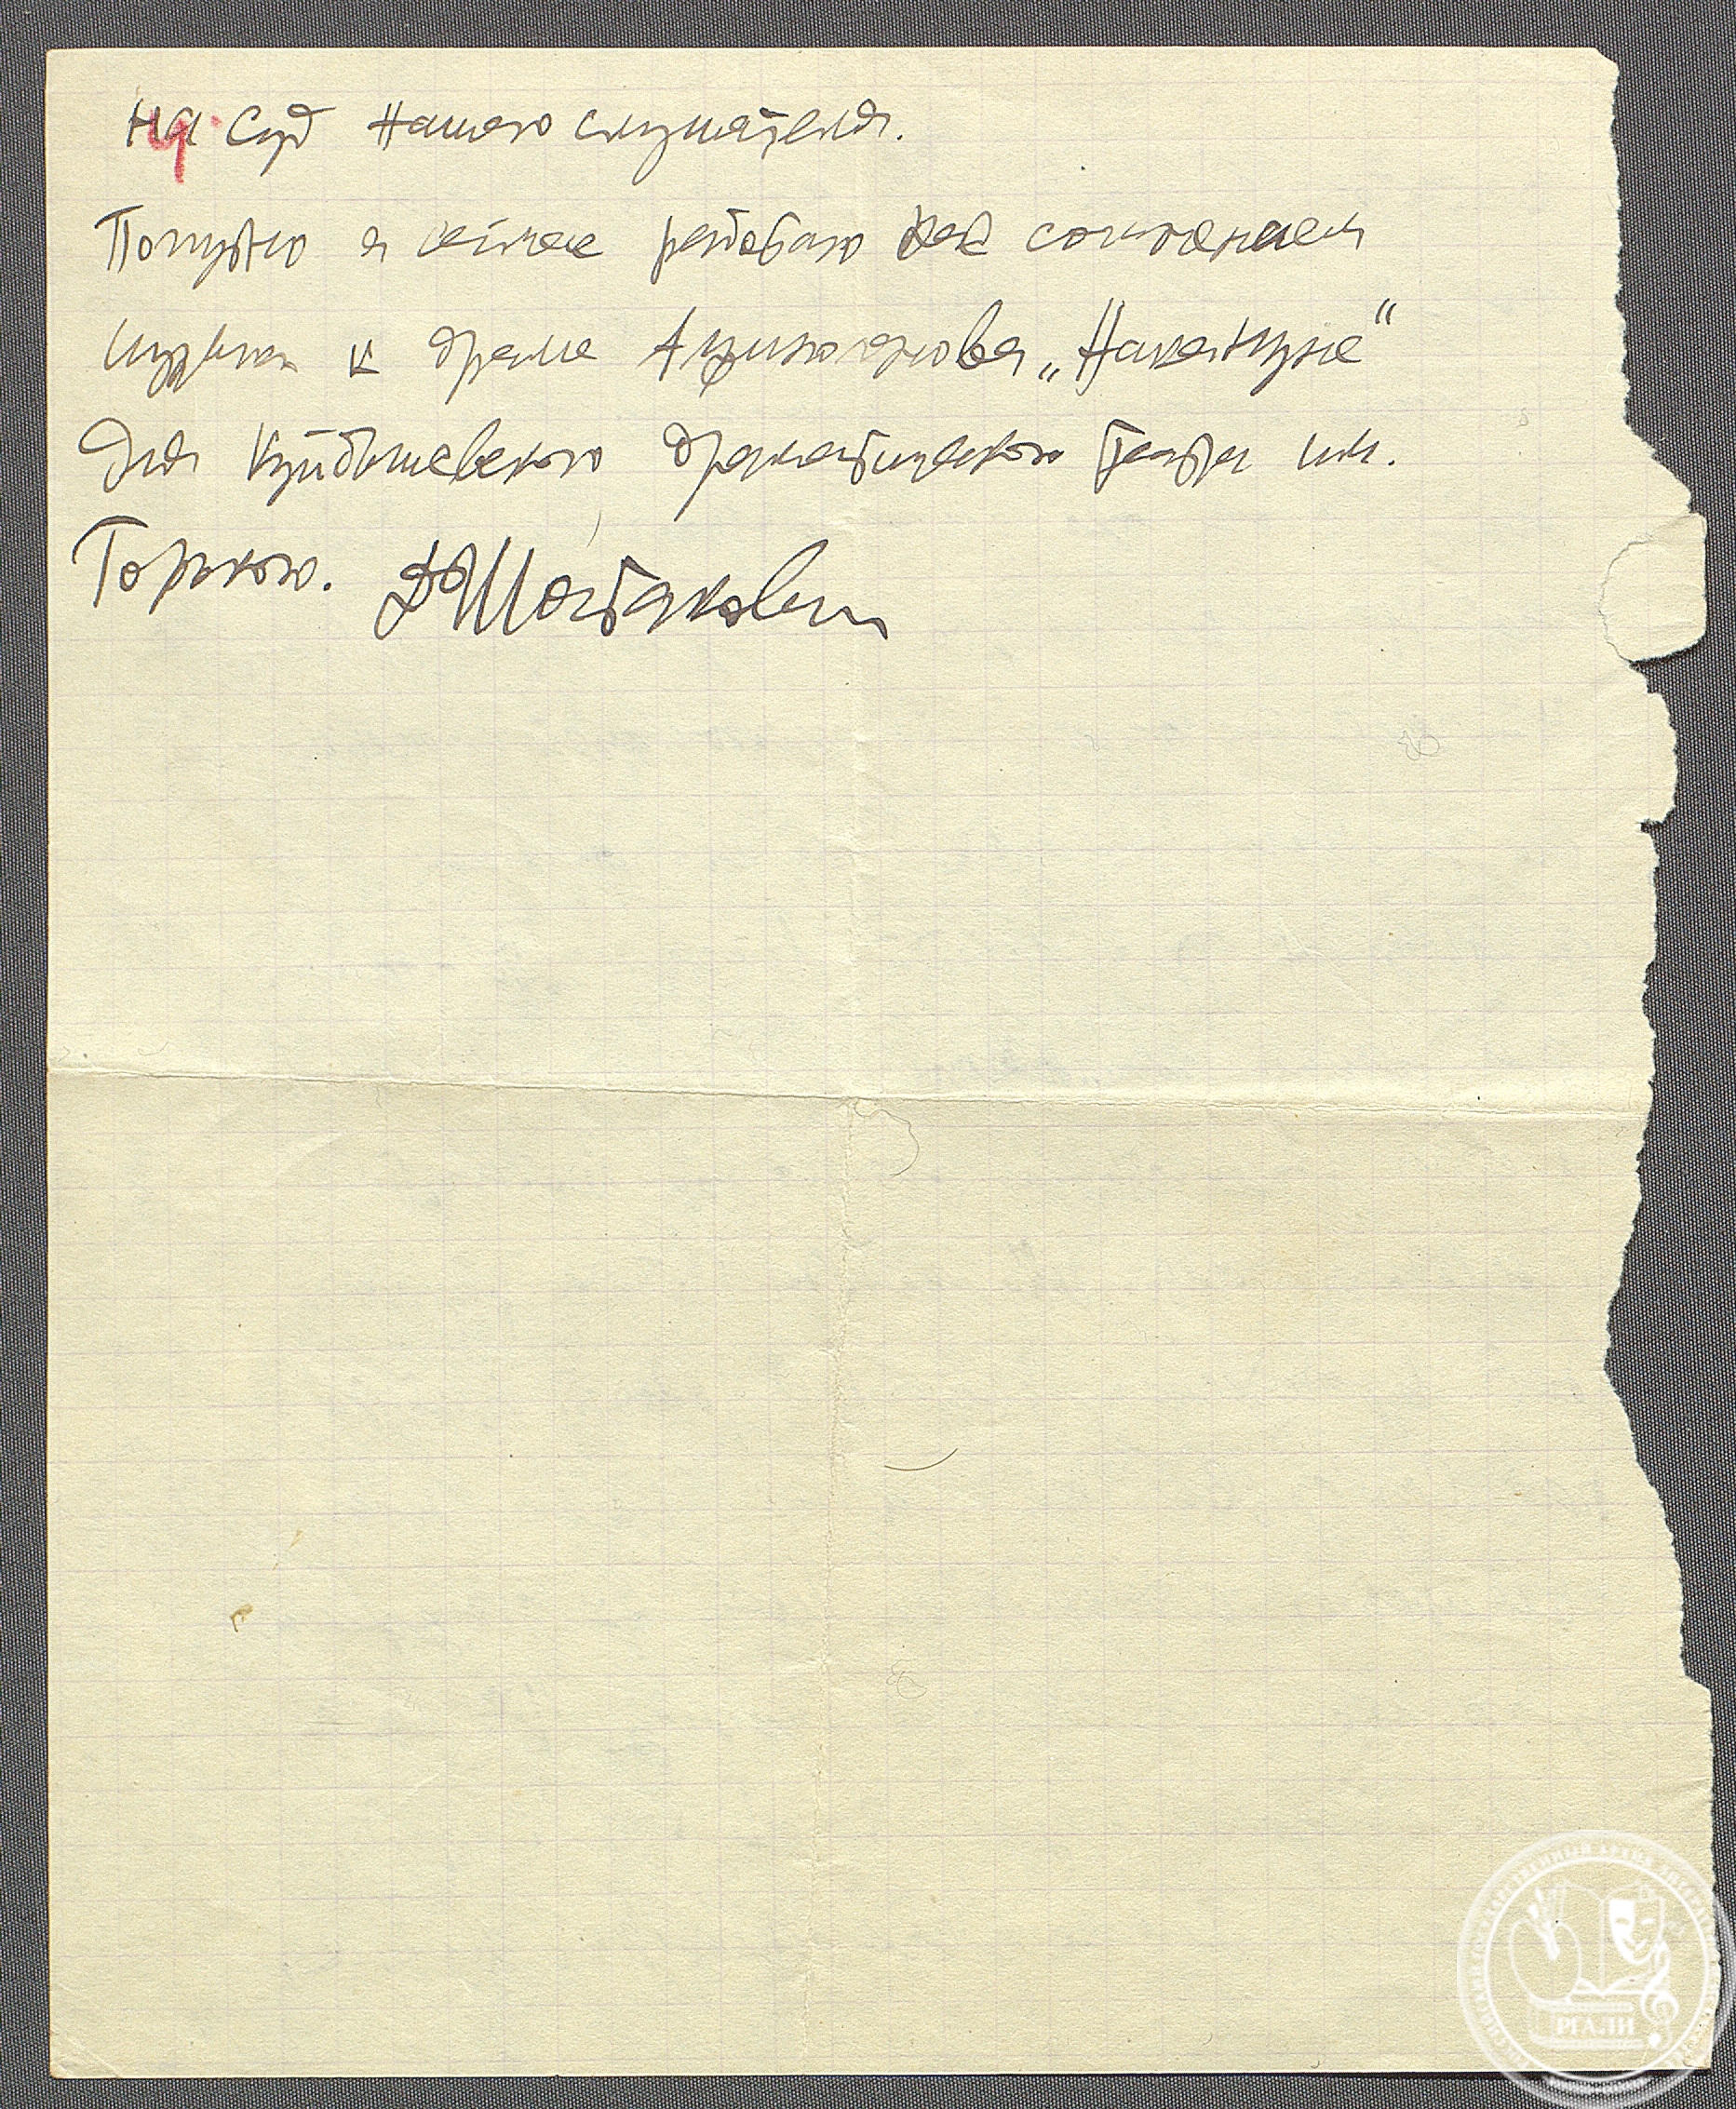 на суд нашего слушателя.
Попутно я сейчас работаю над сочинением
музыки к драме Афиногенова „Накануне“
для Куйбышевского драматического театра им.
Горького. ДШостакович
РГАЛИ